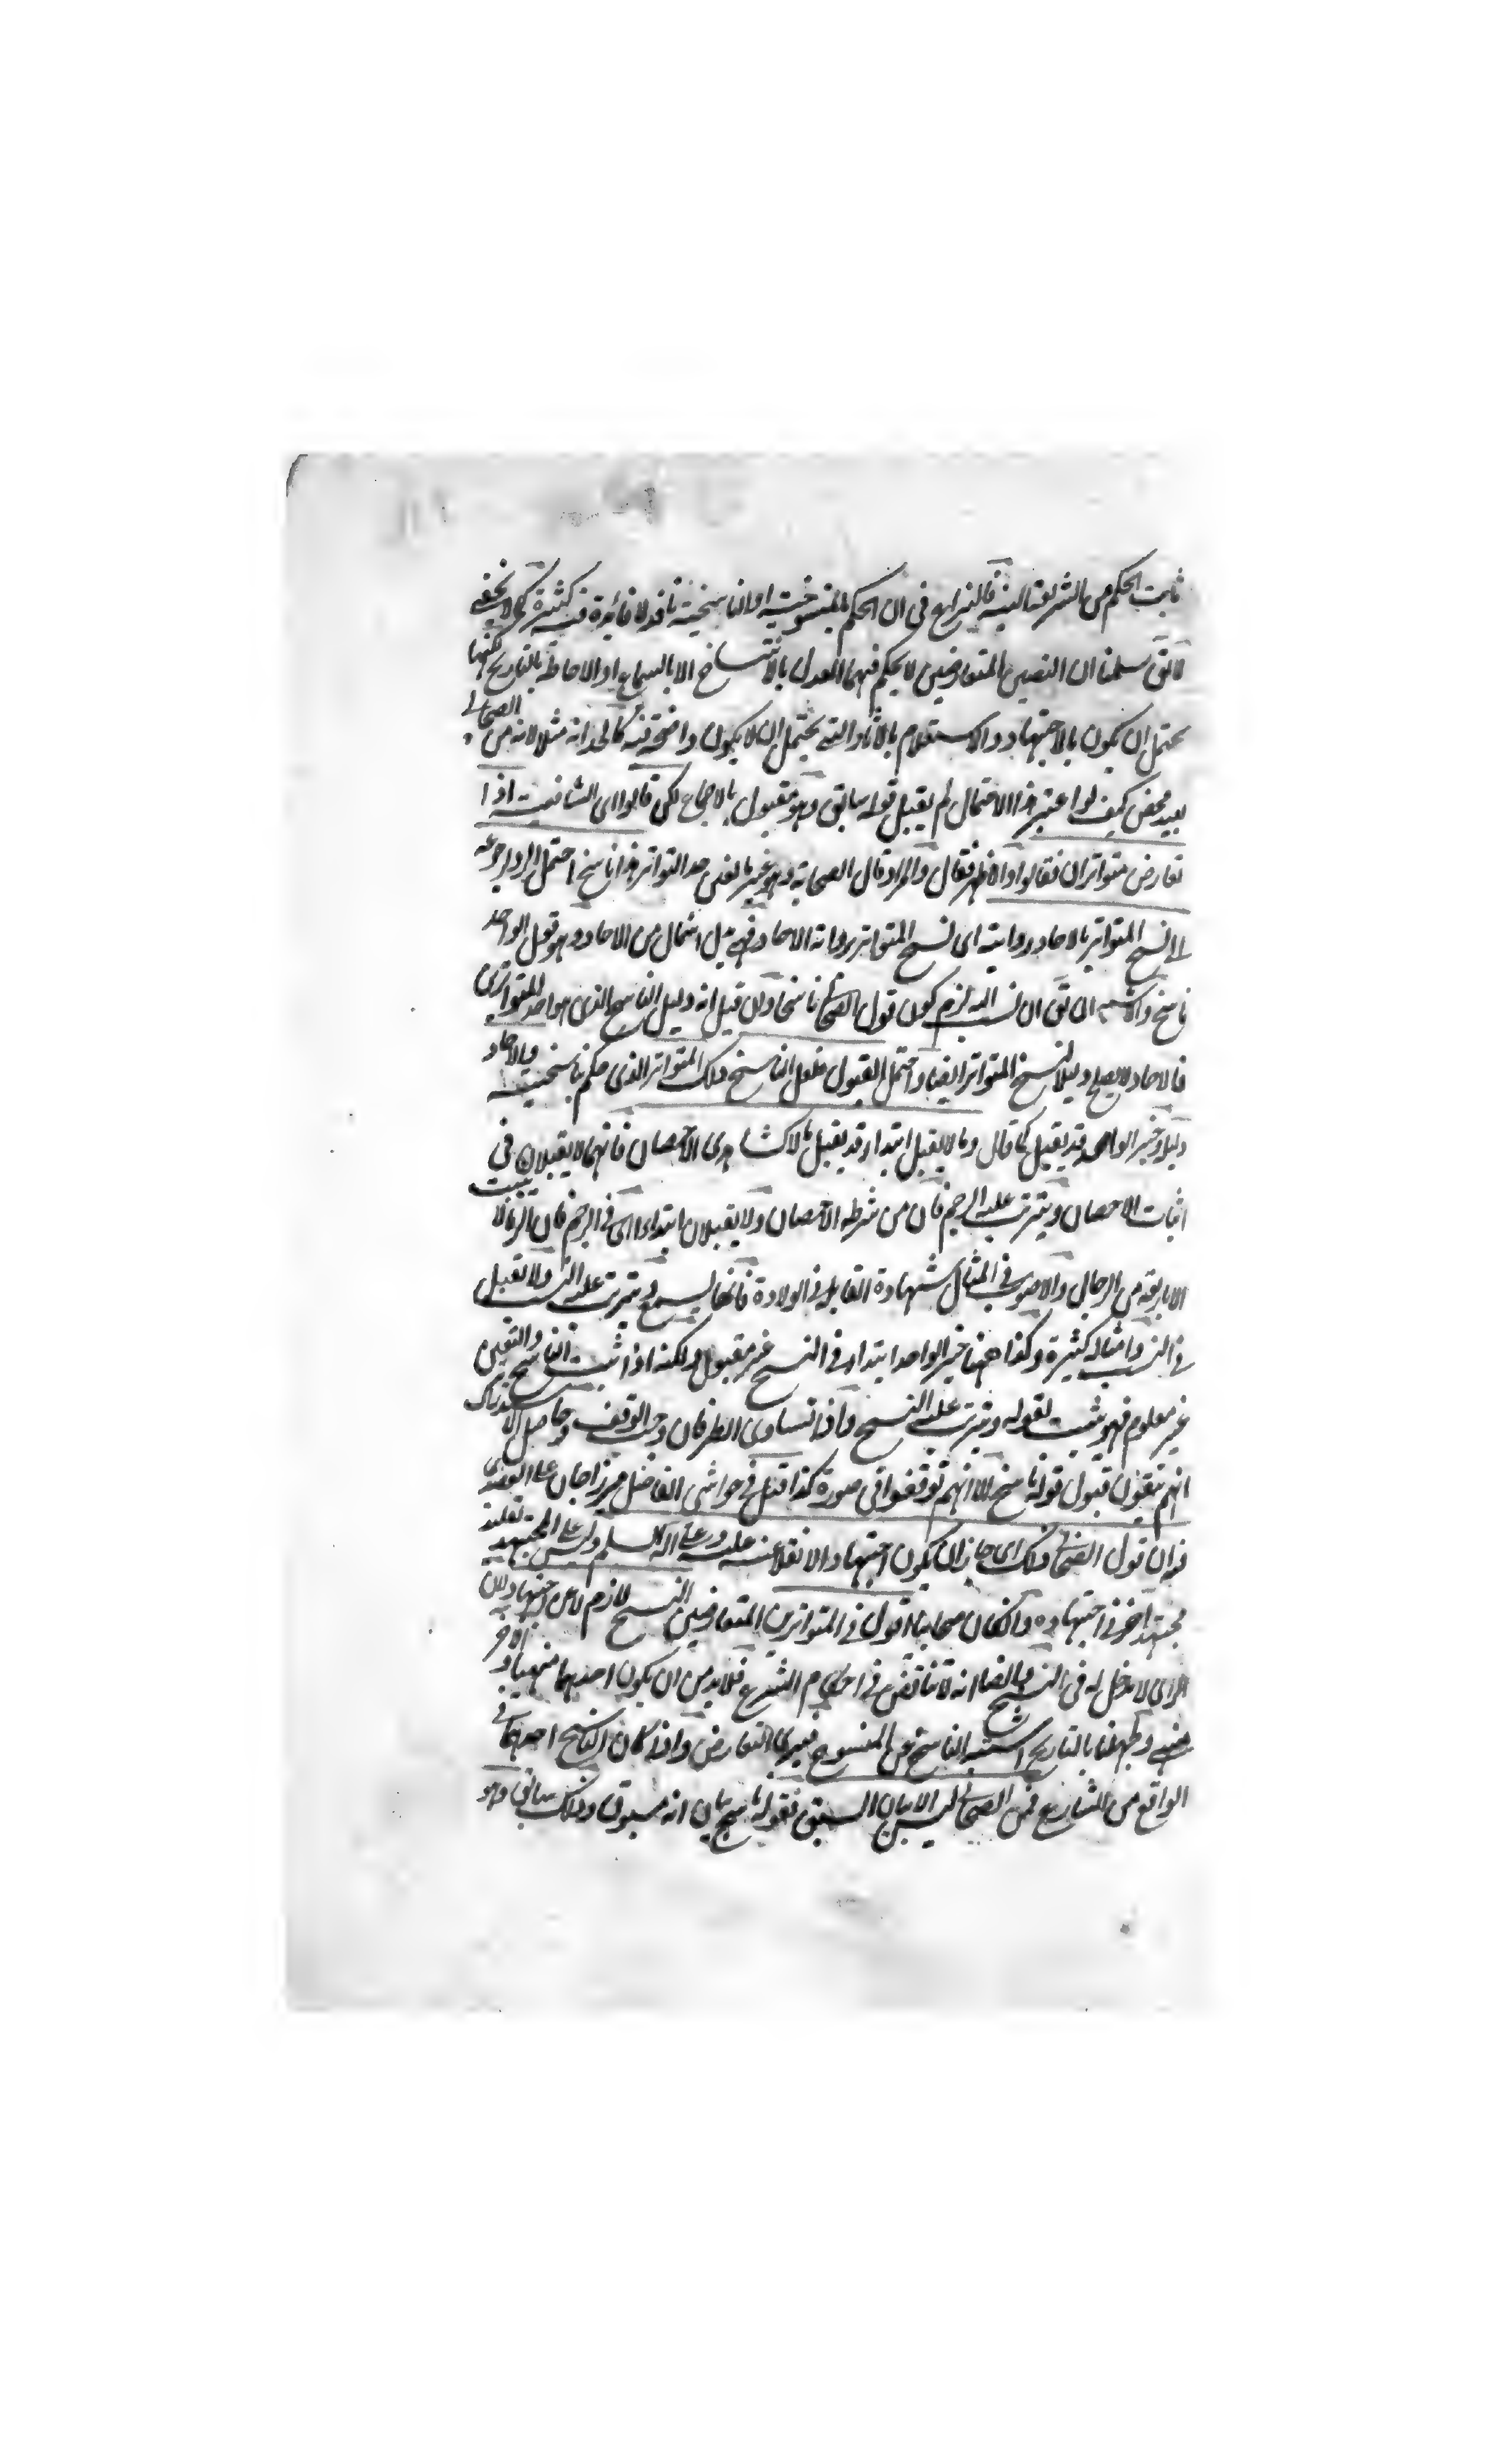 ثابت الحكم من الشريعة فالنزاع في ان الحكم بالمنسوخية او الناسخية نافذ لا فائدة فيه كثيرة كما لا يخفى
لا يق سلمنا ان النصين المتعارضين لا يحكم فيهما العدل بالانتساخ الا بالسماع او الاحاطة بالتاريخ لكنها
يحتمل ان يكون بالاجتهاد والاستعلام بالآثار التي يحتمل ان لا يكون واضحة مثلا لانه من الصحابي
بعيد محض كيف لو اعتبر هذا الاحتمال لم يقبل قوله سابق وهو مقبول بالاجماع لكن قالوا اي الشافعية اذا
تعارض متواتران فقالوا والاظهر فقال والمراد قال الصحابة وهو غير بالغين حد التواتر هذا ناسخ احتمل الرد لرجوعه
الى نسخ المتواتر بالاحاد روايته اي نسخ المتواتر برواية الاحاد من الاحاد وهو قول الواحد
ناسخ والاشبه ان يق ان يلزم كون قول الصحابي ناسخا وان قيل انه دليل الناسخ الذي هو احد المتواترين
فالاحاد لا يصلح دليلا لنسخ المتواتر ايضا واحتمل القبول فلعل الناسخ ذلك المتواتر الذي حكم بناسخيته والاحاد
دليل وخبر الواحد قد يقبل كما قال وما لا يقبل ابتداء قد يقبل مآلا كشاهدي الاحصان فانهما لا يقبلان في
اثبات الاحصان ويترتب عليه الرجم فان من شرطه الاحصان ولا يقبلان ابتداء اي في الرجم فان الزنا لا يثبت
الا باربعة من الرجال والاصوب في المثال شهادة القابلة في الولادة فانها يسمع ويترتب عليه النسب ولا تقبل
في النسب وامثاله كثيرة وكذا ههنا خبر الواحد ابتداء في النسخ غير مقبول ولكنه اذا ثبت الناسخ والتعيين
غير معلوم فهو يثبت بقوله ويترتب عليه النسخ واذا تساوى الطرفان وجب الوقف وحاصل الاستدراك
انهم يتفقون قبول قوله ناسخ الا انهم توقفوا في صورة كذا قيل في حواشي الفاضل ميرزا جان على العضدي
ان قول الصحابي ذلك اي جاز ان يكون اجتهادا لا نقلا عنه عليه وعلى آله السلم وليس على المجتهد تقليد
مجتهد آخر في اجتهاده وان كان صحابيا اقول في المتواترين المتعارضين النسخ لازم لا عن اجتهاد لان
الراي لا مدخل له في النسخ وايضا انه لا تناقض في احكام الشرع فلا بد من ان يكون احدهما منهيا والآخر
وجهلنا بالتاريخ اشتبه الناسخ عن المنسوخ فيرى التعارض واذا كان الناسخ احدهما في
الواقع من الشارع فمن الصحابي ليس الا بيان السبق فقوله ناسخ بيان انه مسبوق وذلك سابق وهو